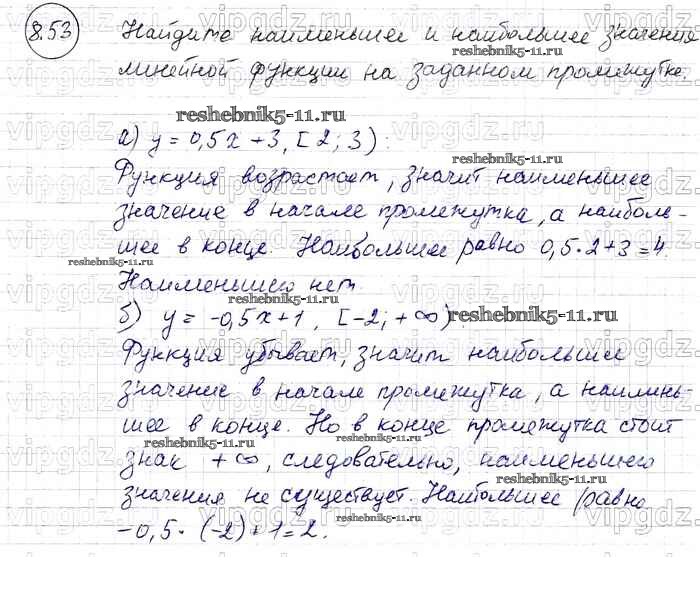 8.53 Найдите наименьшее и наибольшее значения
reshebnik5-11.ru
линейной функции на заданном промежутке.
reshebnik5-11.ru
а) y = 0,5x + 3, [2; 3):
Функция возрастает, значит наименьшее
значение в начале промежутка, а наиболь-
шее в конце. Наибольшее равно 0,5·2+3=4.
reshebnik5-11.ru reshebnik5-11.ru
Наименьшего нет.
б) y = -0,5x+1, [-2; +∞) reshebnik5-11.ru
Функция убывает, значит наибольшее
значение в начале промежутка, а наимень-
шее в конце. Но в конце промежутка стоит
reshebnik5-11.ru reshebnik5-11.ru
знак +∞, следовательно, наименьшего
reshebnik5-11.ru
значения не существует. Наибольшее равно
reshebnik5-11.ru
-0,5·(-2)+1=2.
vipgdz.ru